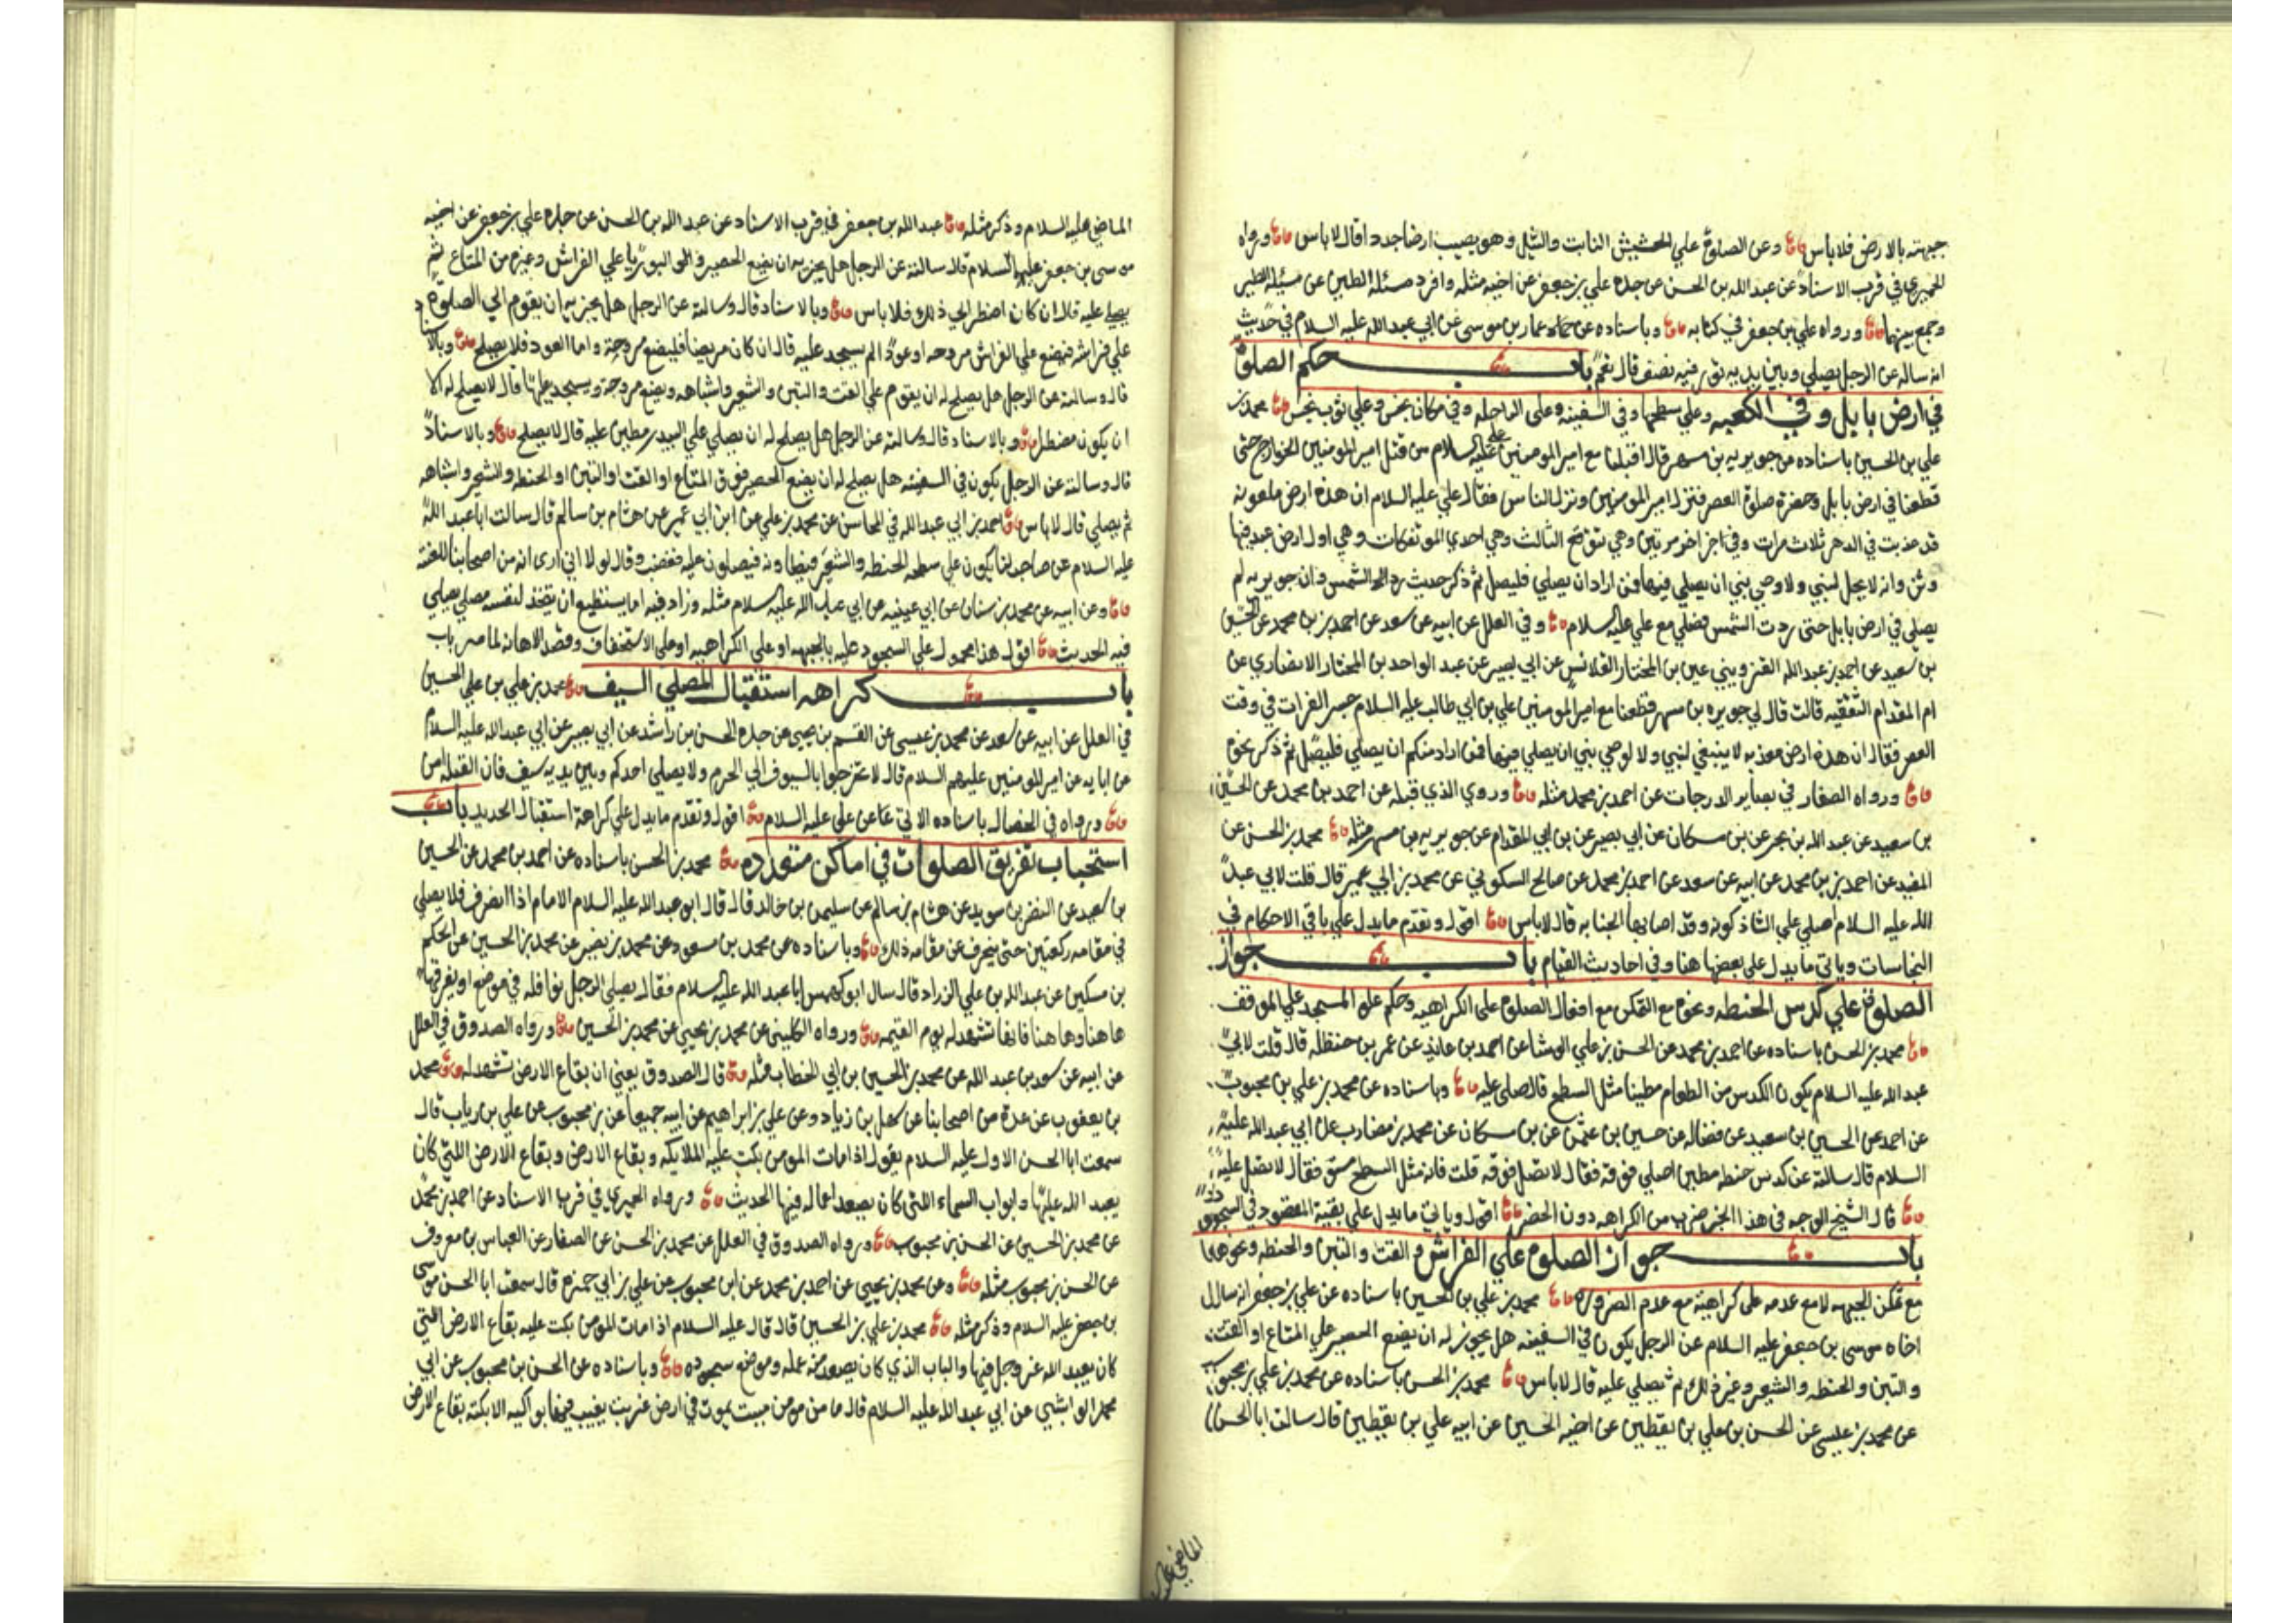 جبهته بالارض فلا باس وعن الصلوة علي الحشيش النابت والثيل وهو يصيب ارضا جددا قال لا باس ورواه
الحميري في قرب الاسناد عن عبد الله بن الحسن عن جده علي بن جعفر عن اخيه مثله وافرد مسئلة الطين عن مسئلة
وجمع بينهما ورواه علي بن جعفر في كتابه وباسناده عن عمار بن موسى عن ابي عبد الله عليه السلام في حديث
انه ساله عن الرجل يصلي وبين يديه تور فيه نضف قال نعم باب حكم الصلوة
في ارض بابل وفي الكعبه وعلي سطحها وفي السفينه وعلى الراحله وفي مكان نجس وعلي ثوب نجس محمد بن
علي بن الحسين باسناده عن جويريه بن مسهر قال اقبلنا مع امير المومنين علي عليه السلام من قتل الخوارج حتى
قطعنا في ارض بابل وحضرة صلوة العصر فنزل امير المومنين ونزل الناس فقال علي عليه السلام ان هذه ارض ملعونه
قد عذبت في الدهر ثلاث مرات وفي اخر مرتين وهي تتوقع الثالث وهي احدي الموتفكات وهي اول ارض عبد فيها
وثن وانه لا يحل لنبي ولا وصي نبي ان يصلي فيها فمن اراد ان يصلي فليصل ثم ذكر حديث رد الشمس وان جويريه لم
يصلي في ارض بابل حتى ردت الشمس فصلي مع علي عليه السلام وفي العلل عن ابيه عن سعد عن احمد بن محمد عن الحسين
بن سعيد عن احمد بن عبد الله القزويني عن بن المختار القلانسي عن ابي بصير عن عبد الواحد بن المختار الانصاري عن
ام المقدام الثقفيه قالت قال لي جويره بن مسهر قطعنا مع امير المومنين علي بن ابي طالب عليه السلام جسر الفرات في وقت
العصر فقال ان هذه ارض معذبه لا ينبغي لنبي ولا لوصي نبي ان يصلي فيها فمن اراد منكم ان يصلي فليصل ثم ذكر نحوه
ورواه الصفار في بصاير الدرجات عن احمد بن محمد مثله وروي الذي قبله عن احمد بن محمد عن الحسين
بن سعيد عن عبد الله بن بحر عن بن مسكان عن ابي بصير عن بن ابي المقدام عن جويريه بن مسهر مثله محمد بن الحسن عن
المفيد عن احمد بن محمد عن ابيه عن سعد عن احمد بن محمد عن صالح السكوني عن محمد بن ابي عمير قال قلت لابي عبد
الله عليه السلام اصلي علي الشاذكونه وقد اصابها الجنابه قال لا باس اقول وتقدم ما يدل علي باقي الاحكام في
النجاسات وياتي ما يدل علي بعضها هنا وفي احاديث القيام باب جواز
الصلوة علي كدس الحنطه ونحوه مع التمكن مع افعال الصلوة على الكراهيه وحكم علو المسجد علي الموقف
محمد بن الحسن باسناده عن احمد بن محمد عن الحسن بن علي الوشا عن احمد بن عايذ عن عمر بن حنظله قال قلت لابي
عبد الله عليه السلام يكون الكدس من الطعام مطينا مثل السطح قال صلي عليه وباسناده عن محمد بن علي بن محبوب
عن احمد عن الحسين بن سعيد عن فضاله عن حسين بن عثمن عن بن مسكان عن محمد بن مضارب عن ابي عبد الله عليه
السلام قال سالته عن كدس حنطه مطين اصلي فوقه فقال لا تصل فوقه قلت فانه مثل السطح مستو فقال لا تصل عليه
قال الشيخ الوجه في هذا الخبر ضرب من الكراهه دون الحضر اقول وياتي ما يدل علي بقية المقصود في السجود
باب جواز الصلوة علي الفراش والقت والتبن والحنطه ونحوها
مع تمكن الجبهه لا مع عدمه على كراهية مع عدم الضروره محمد بن علي بن الحسين باسناده عن علي بن جعفر انه سال
اخاه موسى بن جعفر عليه السلام عن الرجل يكون في السفينه هل يجوز له ان يضع الحصير علي المتاع او القت
والتبن والحنطه والشعير وغير ذلك ثم يصلي عليه قال لا باس محمد بن الحسن باسناده عن محمد بن علي بن محبوب
عن محمد بن عيسى عن الحسن بن علي بن يقطين عن اخيه الحسين عن ابيه علي بن يقطين قال سالت ابا الحسن
الماضي علي
الماضي عليه السلام وذكر مثله عبد الله بن جعفر في قرب الاسناد عن عبد الله بن الحسن عن جده علي بن جعفر عن اخيه
موسى بن جعفر عليه السلام قال سالته عن الرجل هل يجزيه ان يضع الحصير والبوريا علي الفراش وغيره من المتاع ثم
يصلي عليه قال ان كان اضطر الي ذلك فلا باس وبالاسناد قال وسالته عن الرجل هل يجزيه ان يقوم الي الصلوة
علي فراشه فيضع علي الفراش مروحه او عودا ثم يسجد عليه قال ان كان مريضا فليضع مروحة واما العود فلا يصلح وبالا
قال وسالته عن الرجل هل يصلح له ان يقوم علي القت والتبن والشعير واشباهه ويضع مروحة ويسجد عليها قال لا يصلح له الا
ان يكون مضطرا وبالاسناد قال وسالته عن الرجل هل يصلح له ان يصلي علي البيدر مطين عليه قال لا يصلح وبالاسناد
قال وسالته عن الرجل يكون في السفينه هل يصلح له ان يضع الحصير فوق المتاع او القت او التبن او الحنطه والشعير واشباهه
ثم يصلي قال لا باس احمد بن ابي عبد الله في المحاسن عن محمد بن علي عن ابن ابي عمير عن هشام بن سالم قال سالت ابا عبد الله
عليه السلام عن صاحب لنا يكون علي سطحه الحنطه والشعير فيطاونه فيصلون عليه فغضب وقال لولا اني ارى انه من اصحابنا للعنته
وعن ابيه عن محمد بن سنان عن ابي عيينه عن ابي عبد الله عليه السلام مثله وزاد فيه اما يستطيع ان يتخذ لنفسه مصلي يصلي
فيه الحديث اقول هذا محمول علي السجود عليه بالجبهه او على الكراهيه او على الاستخفاف وقصد الاهانه لما مر باب
باب كراهه استقبال المصلي السيف محمد بن علي بن علي الحسين
في العلل عن ابيه عن سعد عن محمد بن عيسى عن القسم بن يحيى عن جده الحسن بن راشد عن ابي بصير عن ابي عبد الله عليه السلام
عن ابايه عن امير المومنين عليهم السلام قال لا تخرجوا بالسيوف الي الحرم ولا يصلي احدكم وبين يديه سيف فان القبله امن
ورواه في الخصال باسناده الاتي عن علي عليه السلام اقول وتقدم ما يدل علي كراهة استقبال الحديد باب
استحباب تفريق الصلوات في اماكن متعدده محمد بن الحسن باسناده عن احمد بن محمد عن الحسين
بن سعيد عن النضر بن سويد عن هشام بن سالم عن سليمن بن خالد قال قال ابو عبد الله عليه السلام الامام اذا انصرف فلا يصلي
في مقامه ركعتين حتى ينحرف عن مقامه ذلك وباسناده عن محمد بن مسعود عن محمد بن نصير عن محمد بن الحسين عن الحكم
بن مسكين عن عبد الله بن علي الزراد قال سال ابو كهمس ابا عبد الله عليه السلام فقال يصلي الرجل نوافله في موضع او يفرقها
هاهنا وهاهنا فانها تشهد له يوم القيمه ورواه الكليني عن محمد بن يحيى عن محمد بن الحسين ورواه الصدوق في العلل
عن ابيه عن سعد بن عبد الله عن محمد بن الحسين بن ابي الخطاب مثله قال الصدوق يعني ان بقاع الارض تشهد له محمد
بن يعقوب عن عدة من اصحابنا عن سهل بن زياد وعن علي بن ابراهيم عن ابيه جميعا عن بن محبوب عن علي بن رياب قال
سمعت ابا الحسن الاول عليه السلام يقول اذا مات المومن بكت عليه الملايكه وبقاع الارض وبقاع الارض اللتي كان
يعبد الله عليها وابواب السماء اللتي كان يصعد اعماله فيها الحديث ورواه الحميري في قرب الاسناد عن احمد بن محمد
عن محمد بن الحسين عن الحسن بن محبوب ورواه الصدوق في العلل عن محمد بن الحسن عن الصفار عن العباس بن معروف
عن الحسن بن محبوب مثله وعن محمد بن يحيى عن احمد بن محمد عن ابن محبوب عن علي بن ابي حمزه قال سمعت ابا الحسن موسى
بن جعفر عليه السلام وذكر مثله محمد بن علي بن الحسين قال قال عليه السلام اذا مات المومن بكت عليه بقاع الارض التي
كان يعبد الله عز وجل فيها والباب الذي كان يصعد منه عمله وموضع سجوده وباسناده عن الحسن بن محبوب عن ابي
محمد الوابشي عن ابي عبد الله عليه السلام قال ما من مومن ميت يموت في ارض غربت يغيب فيها بواكيه الا بكته بقاع الارض